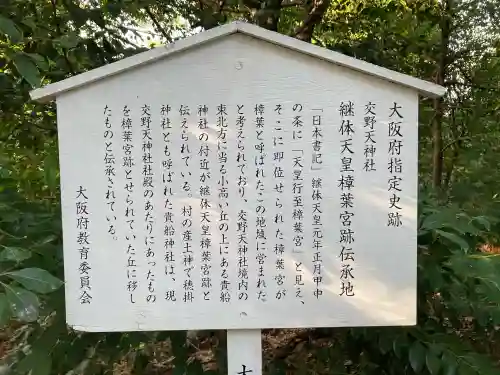 大阪府指定史跡
交野天神社
継体天皇樟葉宮跡伝承地
「日本書記」継体天皇元年正月甲申
の条に「天皇行至樟葉宮」と見え、
そこに即位せられた樟葉宮が
樟葉と呼ばれたこの地域に営まれた
と考えられており、交野天神社境内の
東北方に当る小高い丘の上にある貴船
神社の付近が継体天皇樟葉宮跡と
伝えられている。村の産土神で穂掛
神社とも呼ばれた貴船神社は、現
交野天神社社殿のあたりにあったもの
を樟葉宮跡とせられていた丘に移し
たものと伝承されている。
大阪府教育委員会
大